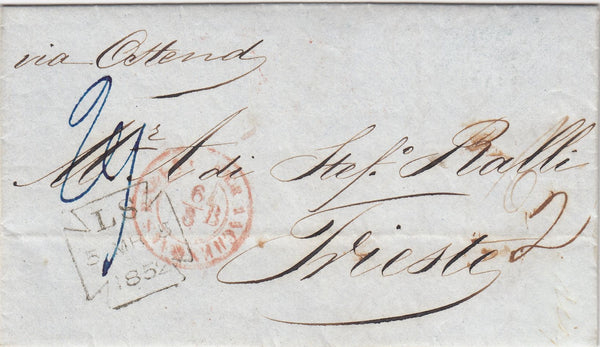 via Ostend
Mr. A di Stef.o Ralli
Trieste
2
LS
5 MR 5
1852
6
B
AACHEN